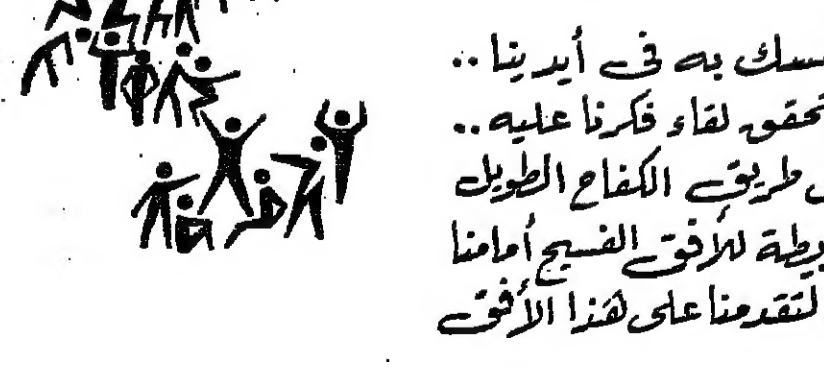 مسك به فى أيدينا ..
تحقق لقاء فكرنا عليه ..
طريق الكفاح الطويل
للأفق الفسيح أمامنا
لتقدمنا على هذا الأفق